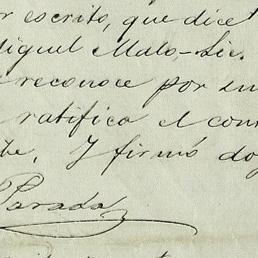 escrito, que dice
Miguel Malo, Lic.
reconoce por su
ratifica el con
te. Y firmó doy
Parada